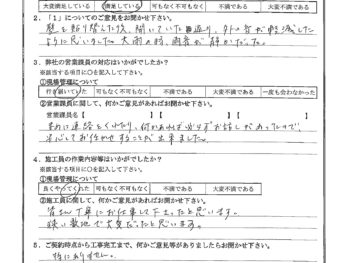 大変満足している 満足している 可もなく不可もなく 不満である 大変不満である
2．「1」についてのご意見をお聞かせ下さい。
壁を貼り替えた後、聞いていた通り、外の音が軽減した
ように思いました。大雨の時、雨音が静かだった。
3．弊社の営業課員の対応はいかがでしたか？
※該当する項目に○を記入して下さい。
①現場管理について
行き届いていた 可もなく不可もなく 不満である 大変不満である 一度も会わなかった
②営業課員に関して、何かご意見があればお聞かせ下さい。
営業課員名【 】【 】【 】
まめに連絡をくださり、何かあれば必ずお話しがあったので、
安心してお任せすることが出来ました。
4．施工員の作業内容等はいかがでしたか？
※該当する項目に○を記入して下さい。
①現場管理について
良くやってくれた 可もなく不可もなく 不満である 大変不満である
②施工員に関して、何かご意見があればお聞かせ下さい。
皆さん丁寧にお仕事して下さったと思います。
狭い敷地で大変だったと思います。
5．ご契約時点から工事完工まで、何かご意見等がありましたらお聞かせ下さい。
特にありません。